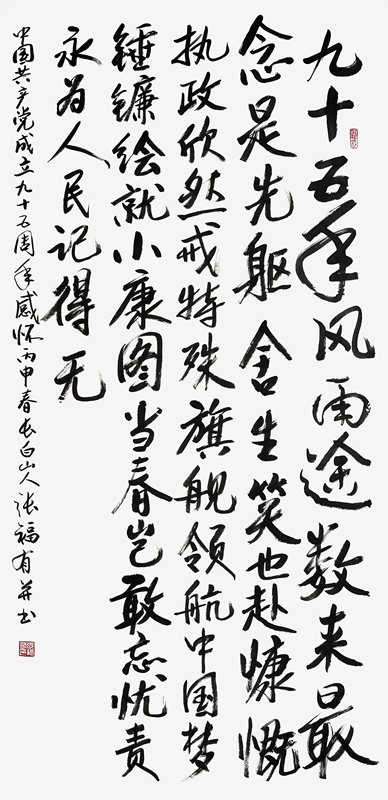 九十五年风雨途数来最
念是先躯舍生笑也赴慷慨
执政欣然戒特殊旗舰领航中国梦
锤镰绘就小康图当春岂敢忘忧责
永为人民记得无
中国共产党成立九十五周年感怀丙申春长白山人张福有并书